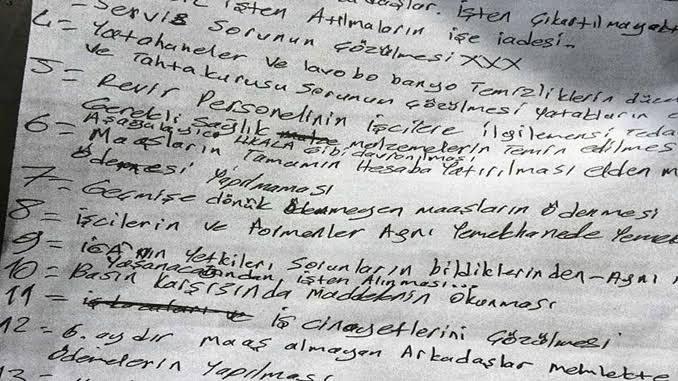 İşten Atılmaların işe iadesi..
İşten Çıkartılmayaktı
4= Servis Sorunun Çözülmesi XXX
Yatahaneler ve lavobo banyo Temizliklerin düzen
ve Tahtakurusu Sorunun Çözülmesi Yatakların
5= Revir Personelinin İşcilere ilgilemensi Teda
Gerekli Sağlık melzemelerin Temin edilmes
Aşağalayıcı HKALA Gibi davranılması
6= Maaşların Tamamın Hesaba Yatırılması elden m
Ödemesi Yapılmaması
7= Geçmişe dönük Ödenmeyen maaşların Ödenmesi
8= işcilerin ve Formenler Aynı Yemekhanede Yemek
9= İGA'nın Yetkileri Sorunların bildiklerinden-Aynı
Yaşanacağından İşten Alınması...
10= Basın Karşısında Maddelenin Okunması
11= İş cinayetlerini Çözülmesi
12= 6. aydır maaş almayan Arkadaşlar memlekte
Ödemelerin Yapılması
13=